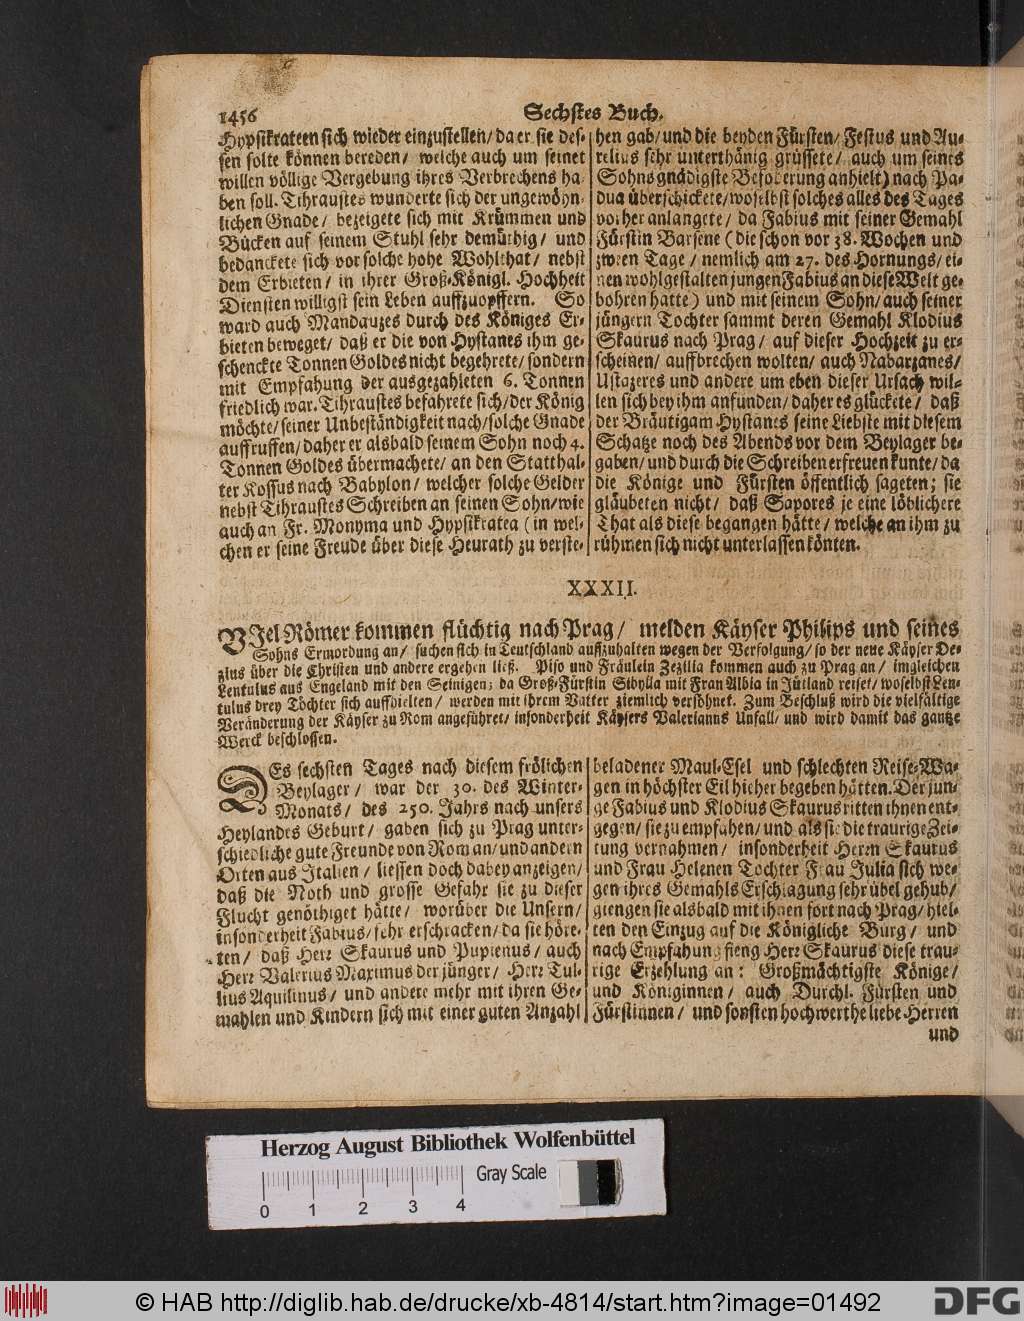 1456
Sechstes Buch.
Hypsikrateen sich wieder einzustellen/ da er sie des-
sen solte können bereden/ welche auch um seinet
willen völlige Vergebung ihres Verbrechens ha-
ben soll. Tihraustes wunderte sich der ungewöhn-
lichen Gnade/ bezeigete sich mit Krümmen und
Bücken auf seinem Stuhl sehr demüthig/ und
bedanckete sich vor solche hohe Wohlthat/ nebst
dem Erbieten/ in ihrer Groß-Königl. Hochheit
Diensten willigst sein Leben auffzuopffern. So
ward auch Mandauzes durch des Königes Er-
bieten beweget/ daß er die von Hystanes ihm ge-
schenckte Tonnen Goldes nicht begehrete/ sondern
mit Empfahung der ausgezahleten 6. Tonnen
friedlich war. Tihraustes befahrete sich/ der König
möchte/ seiner Unbeständigkeit nach/ solche Gnade
auffruffen/ daher er alsbald seinem Sohn noch 4.
Tonnen Goldes übermachete/ an den Statthal-
ter Kossus nach Babylon/ welcher solche Gelder
nebst Tihraustes Schreiben an seinen Sohn/ wie
auch an Fr. Monyma und Hypsikratea (in wel-
chen er seine Freude über diese Heurath zu verste-
hen gab/ und die beyden Fürsten/ Festus und Au-
relius sehr unterthänig grüssete/ auch um seines
Sohns gnädigste Befoderung anhielt) nach Pa-
dua überschickete/ woselbst solches alles des Tages
vorher anlangete/ da Fabius mit seiner Gemahl
Fürstin Barsene (die schon vor 38. Wochen und
zween Tage/ nemlich am 27. des Hornungs/ ei-
nen wohlgestalten jungen Fabius an diese Welt ge-
bohren hatte) und mit seinem Sohn/ auch seiner
jüngern Tochter sammt deren Gemahl Klodius
Skaurus nach Prag/ auf dieser Hochzeit zu er-
scheinen/ auffbrechen wolten/ auch Nabarzanes/
Ustazeres und andere um eben dieser Ursach wil-
len sich bey ihm anfunden/ daher es glückete/ daß
der Bräutigam Hystanes seine Liebste mit diesem
Schatze noch des Abends vor dem Beylager be-
gaben/ und durch die Schreiben erfreuen kunte/ da
die Könige und Fürsten öffentlich sageten; sie
gläubeten nicht/ daß Sapores je eine löblichere
That als diese begangen hätte/ welche an ihm zu
rühmen sich nicht unterlassen könten.
XXXII.
VIel Römer kommen flüchtig nach Prag/ melden Käyser Philips und seines
Sohns Ermordung an/ suchen sich in Teutschland auffzuhalten wegen der Verfolgung/ so der neue Käyser De-
zius über die Christen und andere ergehen ließ. Piso und Fräulein Zezilia kommen auch zu Prag an/ imgleichen
Lentulus aus Engeland mit den Seinigen; da Groß-Fürstin Sibylla mit Fran Albia in Jütland reiset/ woselbst Len-
tulus drey Töchter sich auffhielten/ werden mit ihrem Vatter ziemlich versöhnet. Zum Beschluß wird die vielfältige
Veränderung der Käyser zu Rom angeführet/ insonderheit Käysers Valerianns Unfall/ und wird damit das gantze
Werck beschlossen.
DEs sechsten Tages nach diesem frölichen
Beylager/ war der 30. des Winter-
Monats/ des 250. Jahrs nach unsers
Heylandes Geburt/ gaben sich zu Prag unter-
schiedliche gute Freunde von Rom an/ und andern
Orten aus Italien/ liessen doch dabey anzeigen/
daß die Noth und grosse Gefahr sie zu dieser
Flucht genöthiget hätte/ worüber die Unsern/
insonderheit Fabius/ sehr erschracken/ da sie höre-
ten/ daß Herr Skaurus und Pupienus/ auch
Herr Valerius Maximus der jünger/ Herr Tul-
lius Aquilinus/ und andere mehr mit ihren Ge-
mahlen und Kindern sich mit einer guten Anzahl
beladener Maul-Esel und schlechten Reise-Wa-
gen in höchster Eil hieher begeben hätten. Der jun-
ge Fabius und Klodius Skaurus ritten ihnen ent-
gegen/ sie zu empfahen/ und als sie die traurige Zei-
tung vernahmen/ insonderheit Herrn Skaurus
und Frau Helenen Tochter Frau Julia sich we-
gen ihres Gemahls Erschlagung sehr übel gehub/
giengen sie alsbald mit ihnen fort nach Prag/ hiel-
ten den Einzug auf die Königliche Burg/ und
nach Empfahung fieng Herr Skaurus diese trau-
rige Erzehlung an: Großmächtigste Könige/
und Königinnen/ auch Durchl. Fürsten und
Fürstinnen/ und sonsten hochwerthe liebe Herren
und
Herzog August Bibliothek Wolfenbüttel
Gray Scale
0 1 2 3 4
© HAB http://diglib.hab.de/drucke/xb-4814/start.htm?image=01492
DFG